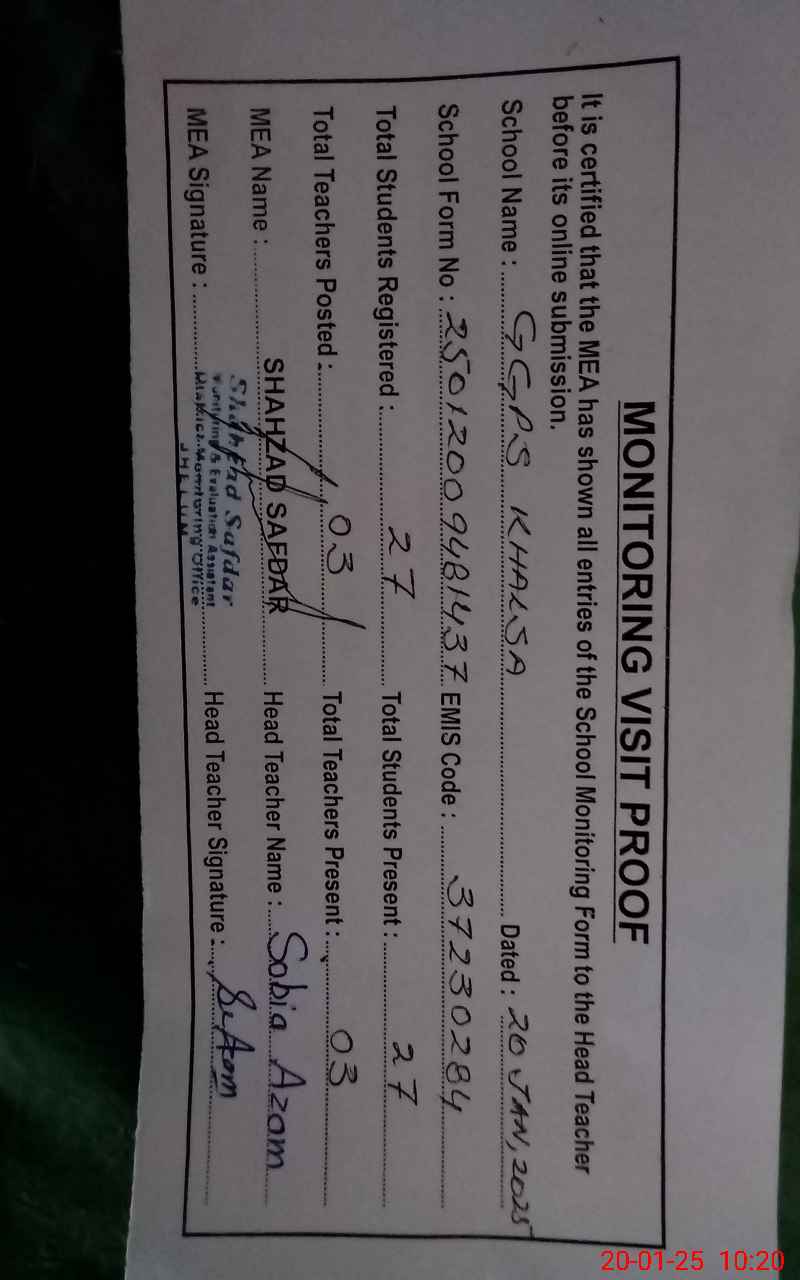 MONITORING VISIT PROOF
It is certified that the MEA has shown all entries of the School Monitoring Form to the Head Teacher
before its online submission.
School Name : GGPS KHALSA Dated : 20 JAN, 2025
School Form No : 25012009481437 EMIS Code : 37230284
Total Students Registered : 27 Total Students Present : 27
Total Teachers Posted : 03 Total Teachers Present : 03
MEA Name : SHAHZAD SAFDAR Head Teacher Name : Sobia Azam
Shahzad Safdar
Monitoring & Evaluation Assistant
MEA Signature : District Monitoring Office Head Teacher Signature :
JHELUM
20-01-25 10:20